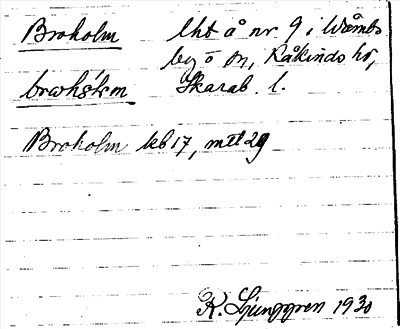 Broholm lht å nr 9 i Wæmbs
by ö sn, Kåkinds hd,
Skarab. l.
Broholm kb 17, mtl 29
R. Ljunggren 1930